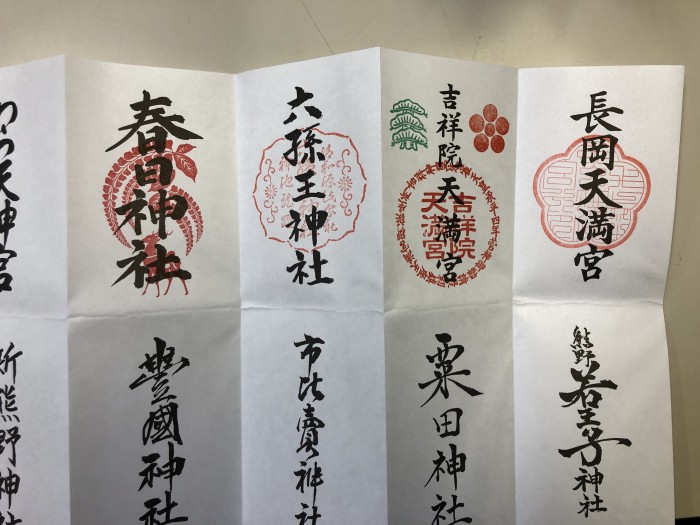 長岡天満宮
吉祥院天満宮
吉祥院
天満宮
六孫王神社
春日神社
わら天神宮
熊野若王子神社
粟田神社
市比賣神社
豐國神社
新熊野神社